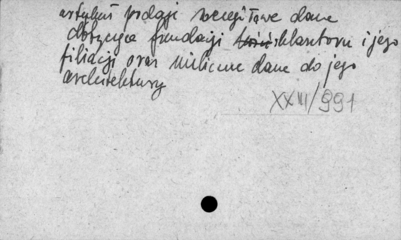 artykuł podaje szczegółowe dane
dotyczące fundacji klasztoru i jego
filiacji oraz nieliczne dane do jego
architektury
XXVI/991